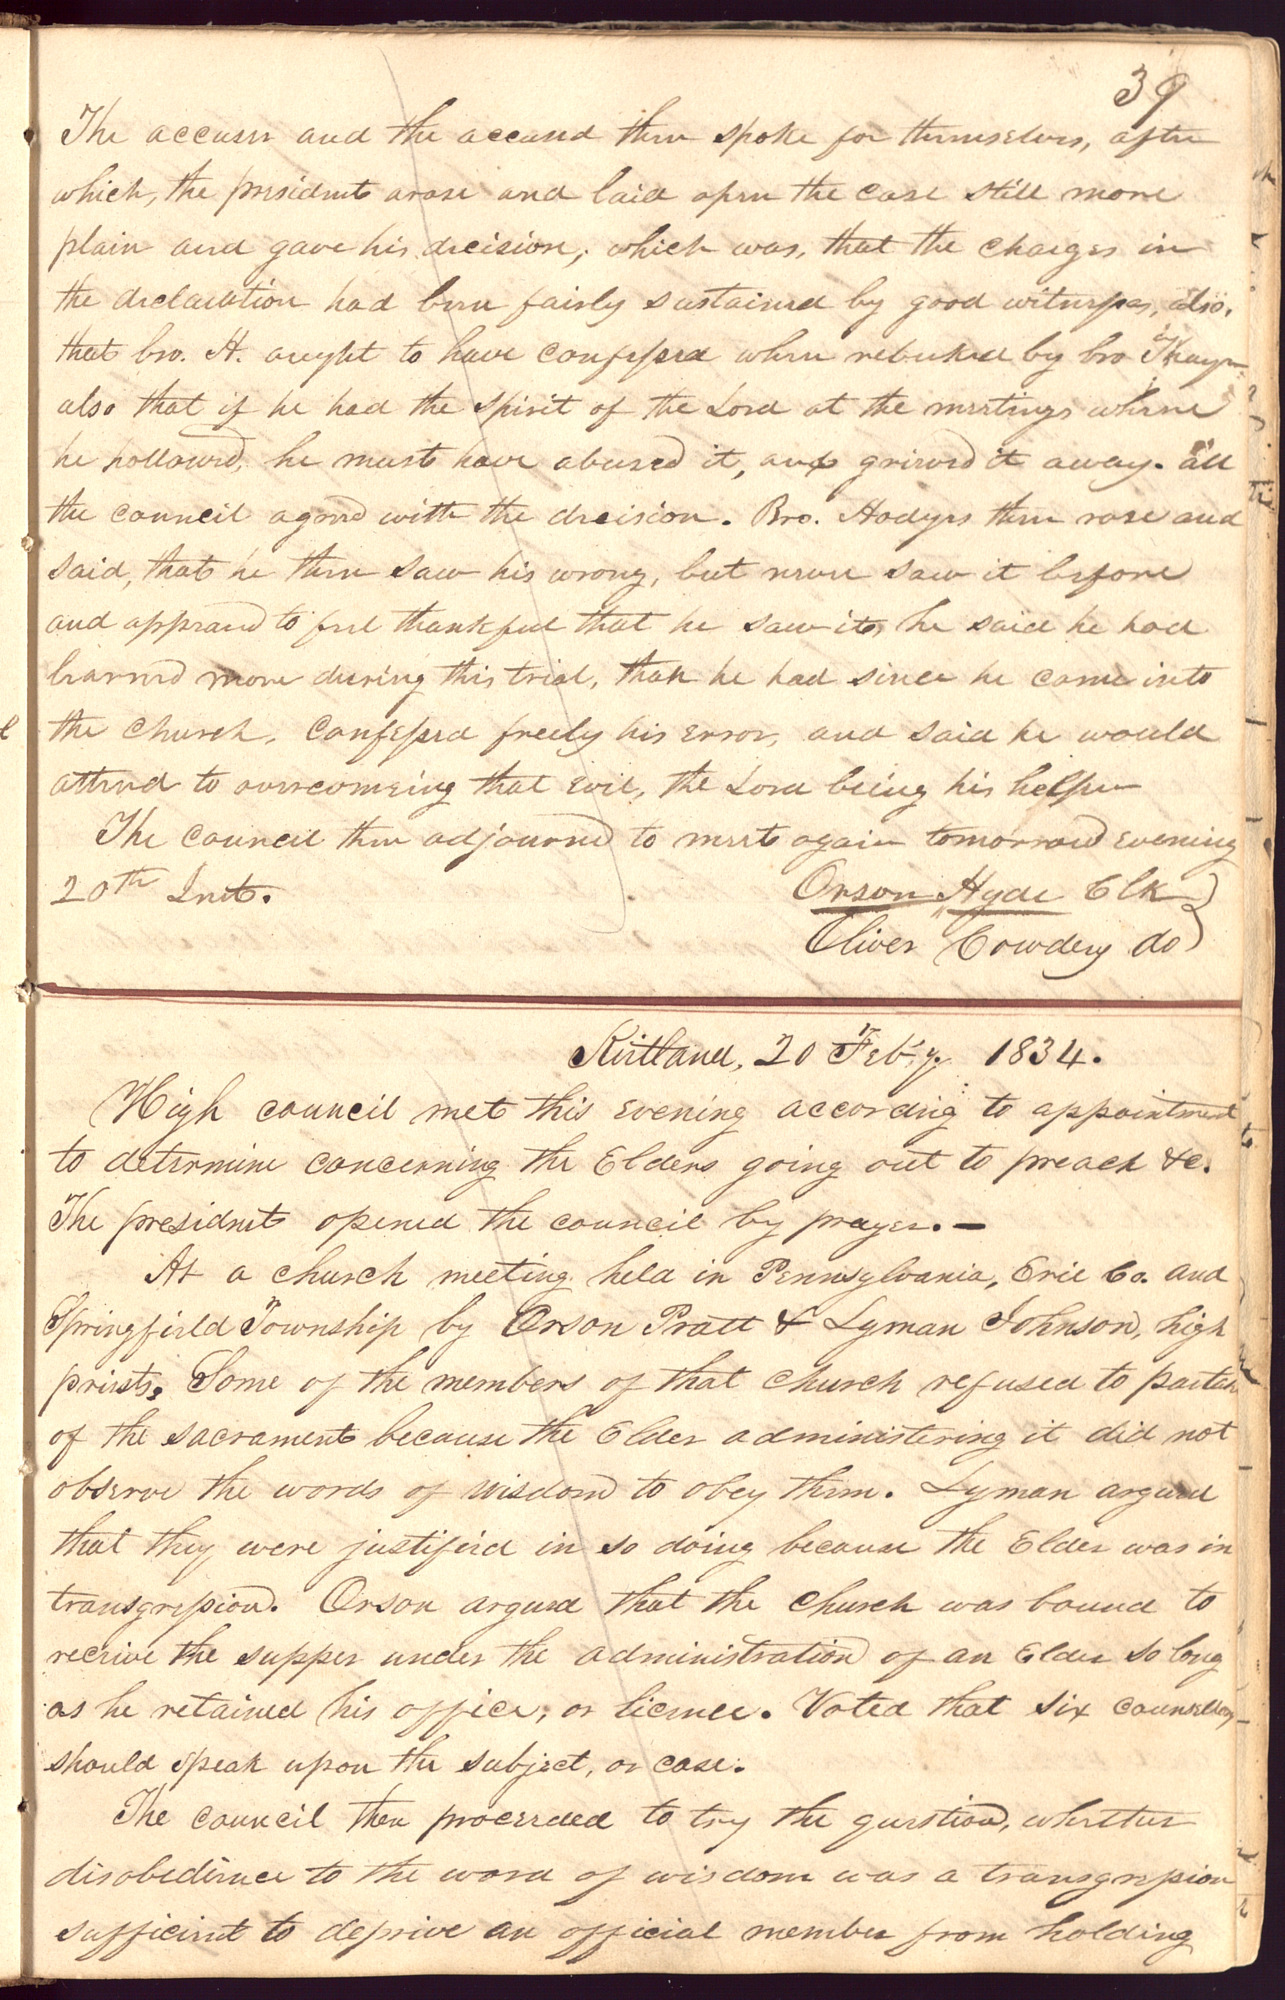 39
The accuser and the accused then spoke for themselves, after
which, the president arose and laid open the case still more
plain and gave his decision, which was, that the charges in
the declaration had been fairly sustained by good witnesses, also,
that bro. H. ought to have confessed when rebuked by bro Thayer
also that if he had the spirit of the Lord at the meetings where
he hollowed, he must have abused it, and grieved it away. all
the council agreed with the decision. Bro. Hodges then rose and
said, that he then saw his wrong, but never saw it before
and appeared to feel thankful that he saw it, he said he had
learned more during this trial, than he had since he came into
the church, confessed freely his error, and said he would
attend to overcomeing that evil, the Lord being his helper
The council then adjourned to meet again tomorrow evening
20th Inst. Orson Hyde Clk
Oliver Cowdery do
Kirtland, 20 Feb'y. 1834.
High council met this evening according to appointment
to determine concerning the Elders going out to preach &c.
The president opened the council by prayer. —
At a church meeting held in Pennsylvania, Erie Co. and
Springfield Township by Orson Pratt & Lyman Johnson, high
priests, Some of the members of that church refused to partake
of the sacrament because the Elder administering it did not
observe the words of wisdom to obey them. Lyman argued
that they were justified in so doing because the Elder was in
transgression. Orson argued that the church was bound to
receive the supper under the administration of an Elder so long
as he retained his office, or licence. Voted that six counsellors
should speak upon the subject, or case.
The council then proceeded to try the question, whether
disobedience to the word of wisdom was a transgression
sufficient to deprive an official member from holding